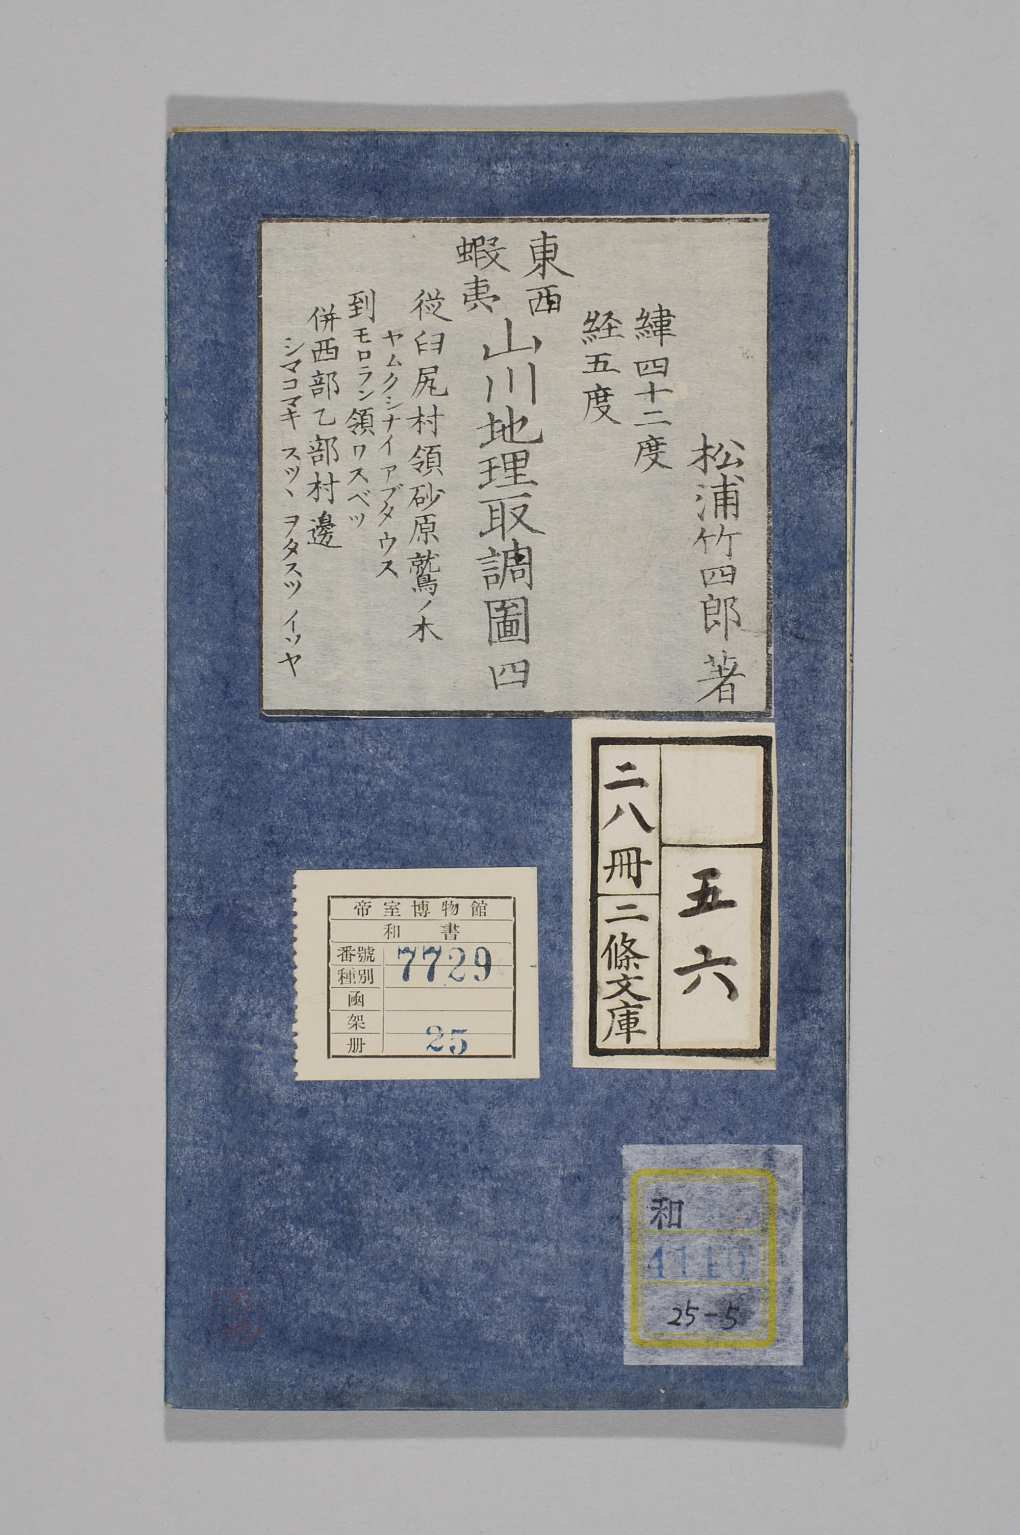 松浦竹四郎著
緯四十二度
経五度
東西
蝦夷
山川地理取調圖四
従臼尻村領砂原鷲ノ木
ヤムクシナイアブタウス
到モロラン領ワスベツ
併西部乙部村邊
シマコマキスツヽヲタスツイソヤ
五六
二八冊
二條文庫
帝室博物館
和書
番號 7729
種別
凾
架
册 25
和
4110
25-5